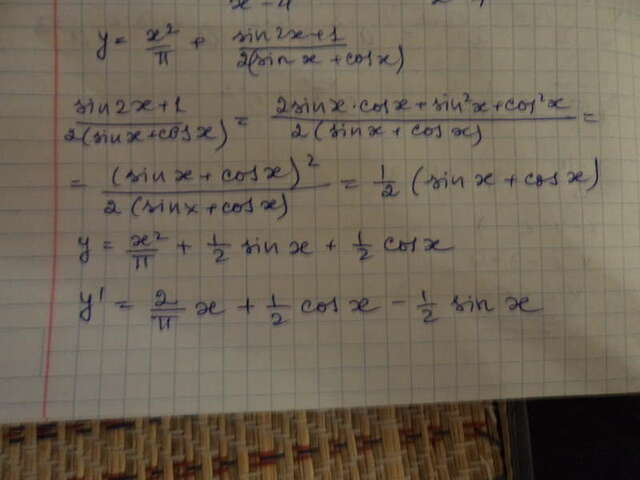 y = x²/π + (sin2x+1)/(2(sin x + cos x))
(sin2x+1)/(2(sinx+cosx)) = (2sinx·cosx+sin²x+cos²x)/(2(sinx+cosx)) =
= (sin x + cos x)²/(2(sinx+cosx)) = 1/2 (sin x + cos x)
y = x²/π + 1/2 sin x + 1/2 cos x
y' = 2/π x + 1/2 cos x − 1/2 sin x